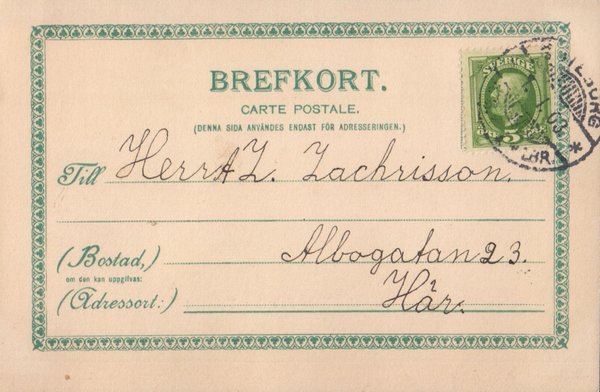 BREFKORT.
CARTE POSTALE.
(DENNA SIDA ANVÄNDES ENDAST FÖR ADRESSERINGEN.)
SVERIGE
5
LBR.
Till Herr A Z. Zachrisson.
(Bostad,) Albogatan 23.
om den kan uppgifvas:
(Adressort:) Här.